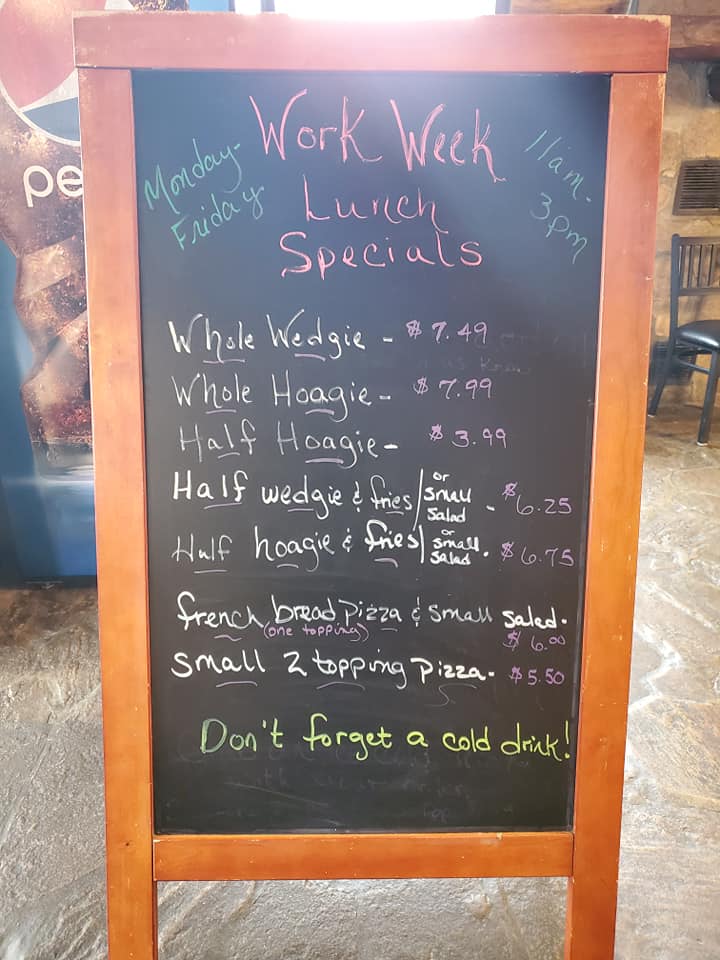 pe
Monday-
Friday
Work Week
Lunch
Specials
11am-
3pm
Whole Wedgie - $7.49
Whole Hoagie - $7.99
Half Hoagie - $3.99
Half wedgie & fries/or small salad - $6.25
Half hoagie & fries/or small salad. $6.75
french bread pizza & small salad.
(one topping) $6.00
Small 2 topping pizza - $5.50
Don't forget a cold drink!